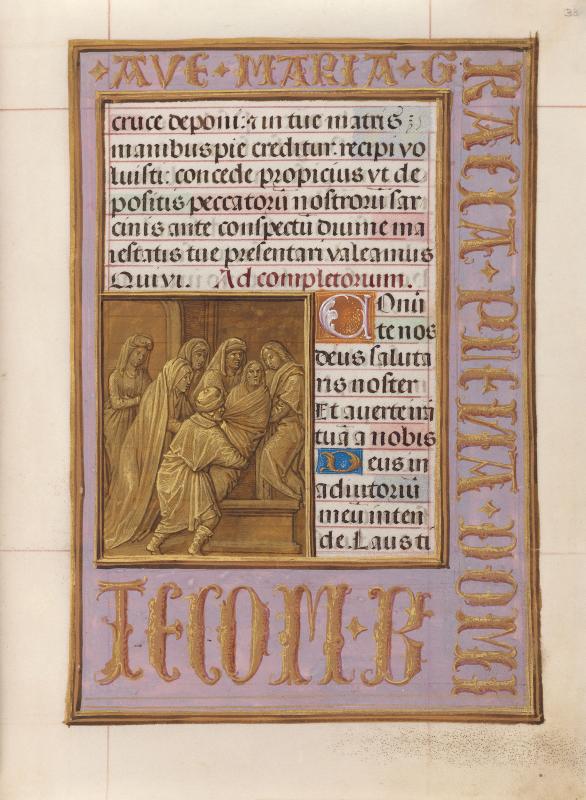 33
AVE MARIA G
RACIA PLENA DOMI
cruce deponi: ⁊ in tue matris
manibus pie creditur recipi vo
luisti: concede propicius vt de
positis peccatorū nostrorū sar
cinis ante conspectū diuine ma
iestatis tue presentari valeamus
Qui vi. Ad completorum.
Conũ
te nos
deus saluta
ris noster
Et auerte irā
tuā a nobis
Deus in
adiutoriū
meū inten
de. Laus ti
TECOM B